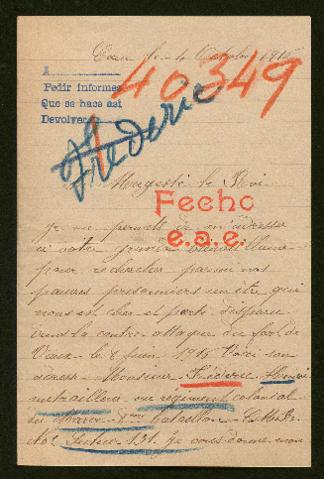 le 4 Octobre 1916
A
Pedir informes
Que se hace asi
Devolver
40349
Frederic
Majesté le Roi
Fecho
e.a.e.
Je me permets de m'adresse
à votre grande bienveillance
pour rechercher parmi nos
pauvres prisonniers un être qui
nous est cher et porté disparu
dans la contre attaque du fort de
Vaux le 8 juin 1916 Voici son
adresse Monsieur Frédéric Henri
mitrailleur régiment colonial
du Maroc 8ème bataillon
Secteur 131. Je vous donne mon